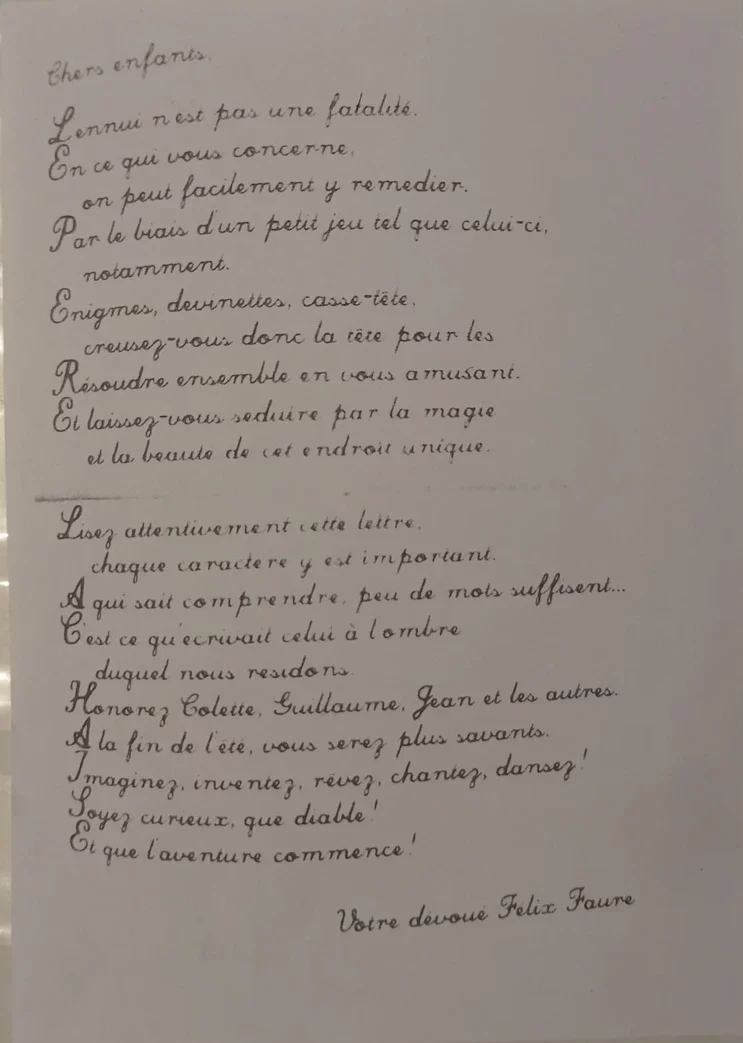 Chers enfants,
L'ennui n'est pas une fatalité.
En ce qui vous concerne,
on peut facilement y remedier.
Par le biais d'un petit jeu tel que celui-ci,
notamment.
Enigmes, devinettes, casse-tête,
creusez-vous donc la tête pour les
Résoudre ensemble en vous amusant.
Et laissez-vous seduire par la magie
et la beaute de cet endroit unique.
Lisez attentivement cette lettre,
chaque caractere y est important.
A qui sait comprendre, peu de mots suffisent...
C'est ce qu'ecrivait celui à l'ombre
duquel nous residons.
Honorez Colette, Guillaume, Jean et les autres.
A la fin de l'été, vous serez plus savants.
Imaginez, inventez, rêvez, chantez, dansez!
Soyez curieux, que diable!
Et que l'aventure commence!
Votre dévoué Félix Faure